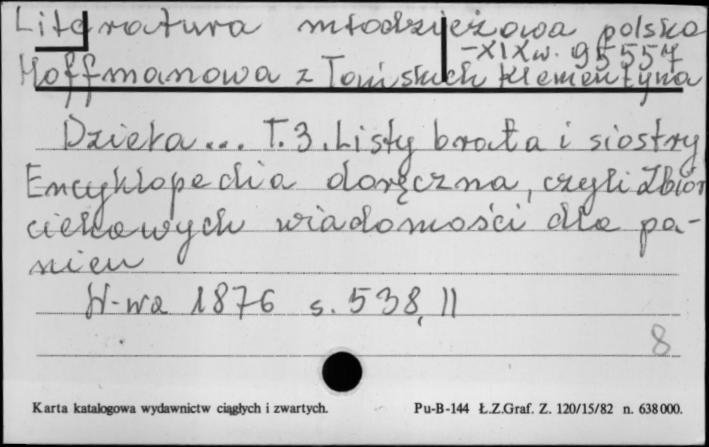 Literatura młodzieżowa polska
-XIXw. 95557
Hoffmanowa z Tańskich Klementyna
Dzieła... T.3. Listy brata i siostry
Encyklopedia doręczna, czyli Zbiór
ciekawych wiadomości dla pa-
nien
W-wa 1876 s. 538, II
8
Karta katalogowa wydawnictw ciągłych i zwartych. Pu-B-144 Ł.Z.Graf. Z. 120/15/82 n. 638000.